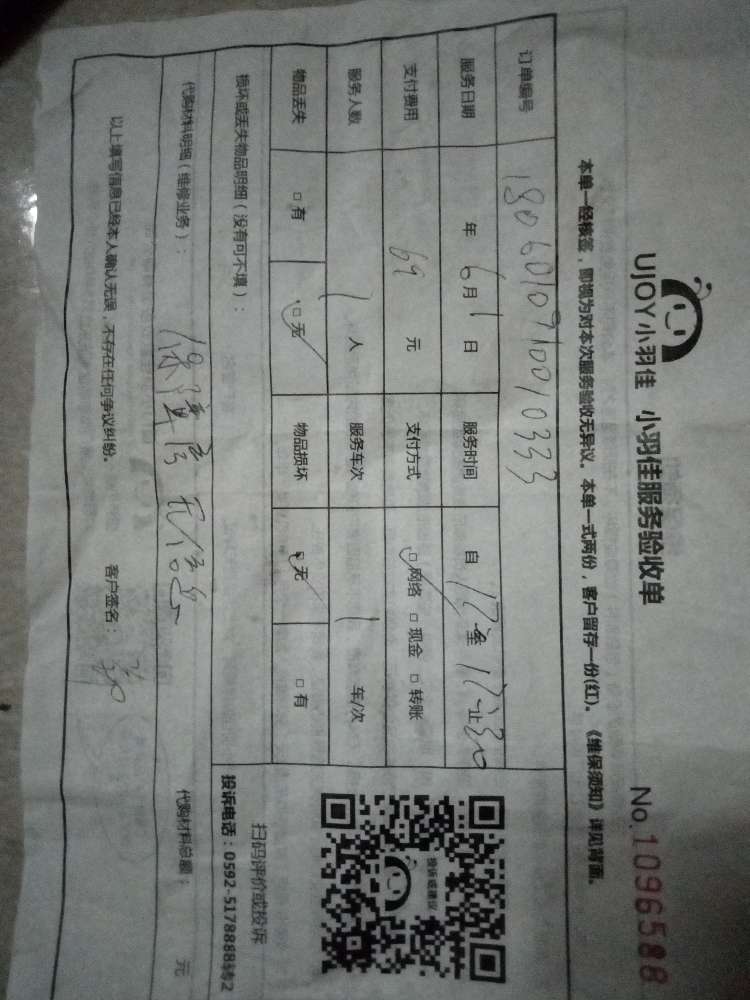 UJOY小羽佳 小羽佳服务验收单 No.1096588
本单一经核签，即视为对本次服务验收无异议。本单一式两份，客户留存一份(红)。《维保须知》详见背面。
订单编号 1806010910010333
服务日期 年 6月1日 服务时间 自 12 至 12 止 30
支付费用 69 元 支付方式 □网络 □现金 □转账
服务人数 1 人 服务车次 1 车/次
物品丢失 □有 □无 物品损坏 □无 □有
投诉或建议
扫码评价或投诉
投诉电话：0592-5178888转2
损坏或丢失物品明细（没有可不填）：
代购材料明细（维修业务）： 代购材料总额： 元
以上填写信息已经本人确认无误，不存在任何争议纠纷。 客户签名：